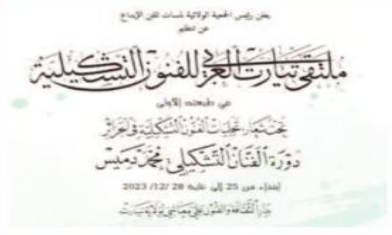 يعلن رئيس الجمعية الولائية لمسات للفن والإبداع
عن تنظيم
ملتقى تيارت العربي للفنون التشكيلية
في طبعته الأولى
تحت شعار تجليات الفنون التشكيلية في الجزائر
دورة الفنان التشكيلي محمد دميس
إبتداء من 25 إلى غاية 28 /12/ 2023
بدار الثقافة والفنون علي معاشي لولاية تيارت